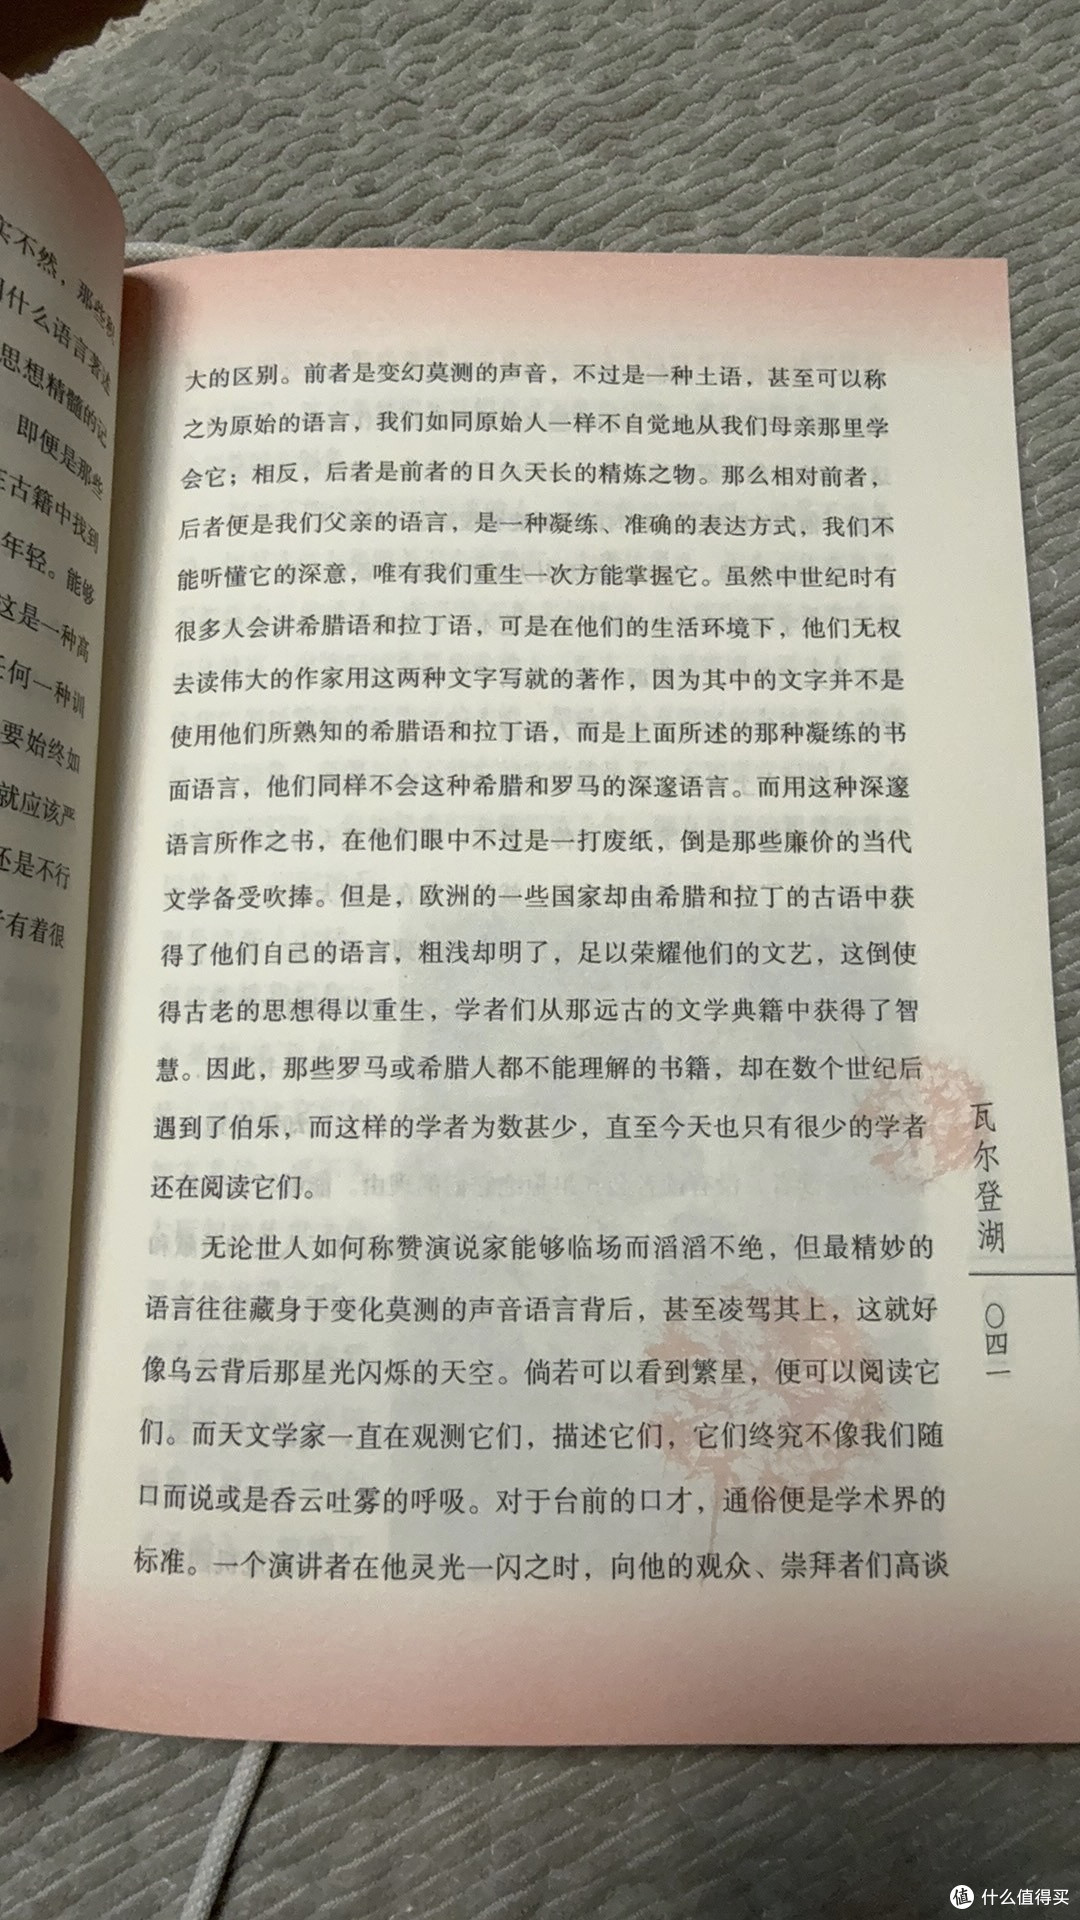 实不然，那些积
用什么语言著述
思想精髓的记
即便是那些
在古籍中找到
年轻。能够
这是一种高
任何一种训
要始终如
就应该严
还是不行
有着很
大的区别。前者是变幻莫测的声音，不过是一种土语，甚至可以称
之为原始的语言，我们如同原始人一样不自觉地从我们母亲那里学
会它；相反，后者是前者的日久天长的精炼之物。那么相对前者，
后者便是我们父亲的语言，是一种凝练、准确的表达方式，我们不
能听懂它的深意，唯有我们重生一次方能掌握它。虽然中世纪时有
很多人会讲希腊语和拉丁语，可是在他们的生活环境下，他们无权
去读伟大的作家用这两种文字写就的著作，因为其中的文字并不是
使用他们所熟知的希腊语和拉丁语，而是上面所述的那种凝练的书
面语言，他们同样不会这种希腊和罗马的深邃语言。而用这种深邃
语言所作之书，在他们眼中不过是一打废纸，倒是那些廉价的当代
文学备受吹捧。但是，欧洲的一些国家却由希腊和拉丁的古语中获
得了他们自己的语言，粗浅却明了，足以荣耀他们的文艺，这倒使
得古老的思想得以重生，学者们从那远古的文学典籍中获得了智
慧。因此，那些罗马或希腊人都不能理解的书籍，却在数个世纪后
遇到了伯乐，而这样的学者为数甚少，直至今天也只有很少的学者
还在阅读它们。
无论世人如何称赞演说家能够临场而滔滔不绝，但最精妙的
语言往往藏身于变化莫测的声音语言背后，甚至凌驾其上，这就好
像乌云背后那星光闪烁的天空。倘若可以看到繁星，便可以阅读它
们。而天文学家一直在观测它们，描述它们，它们终究不像我们随
口而说或是吞云吐雾的呼吸。对于台前的口才，通俗便是学术界的
标准。一个演讲者在他灵光一闪之时，向他的观众、崇拜者们高谈
瓦尔登湖
〇四一
值 什么值得买